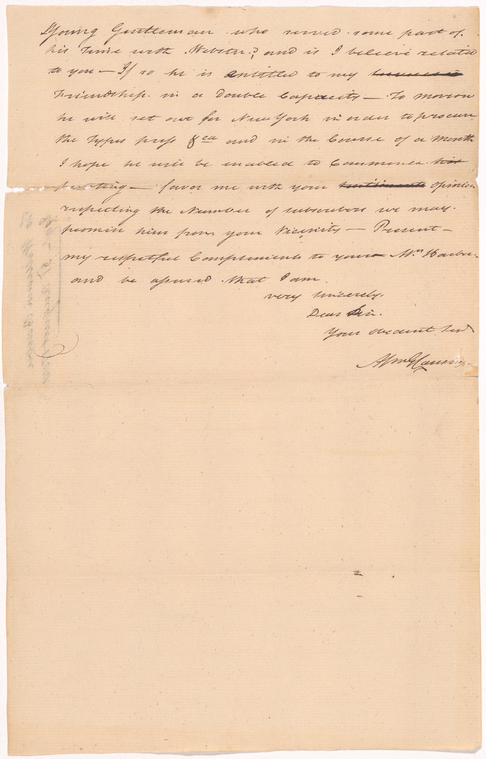 Young Gentleman who served some part of
his time with Webster, and is I believe related
to you — If so he is entitled to my
Friendship in a double Capacity — To morrow
he will set out for New York in order to procure
the Types press &ca and in the Course of a month
I hope he will be enabled to Commence his
printing — favor me with your sentiments opinion
respecting the Number of subscribers we may
promise him from your Vicinity — Present
my respectful Compliments to your Mrs
and be assured that I am
very sincerely
Dear Sir
Your obedient Servt